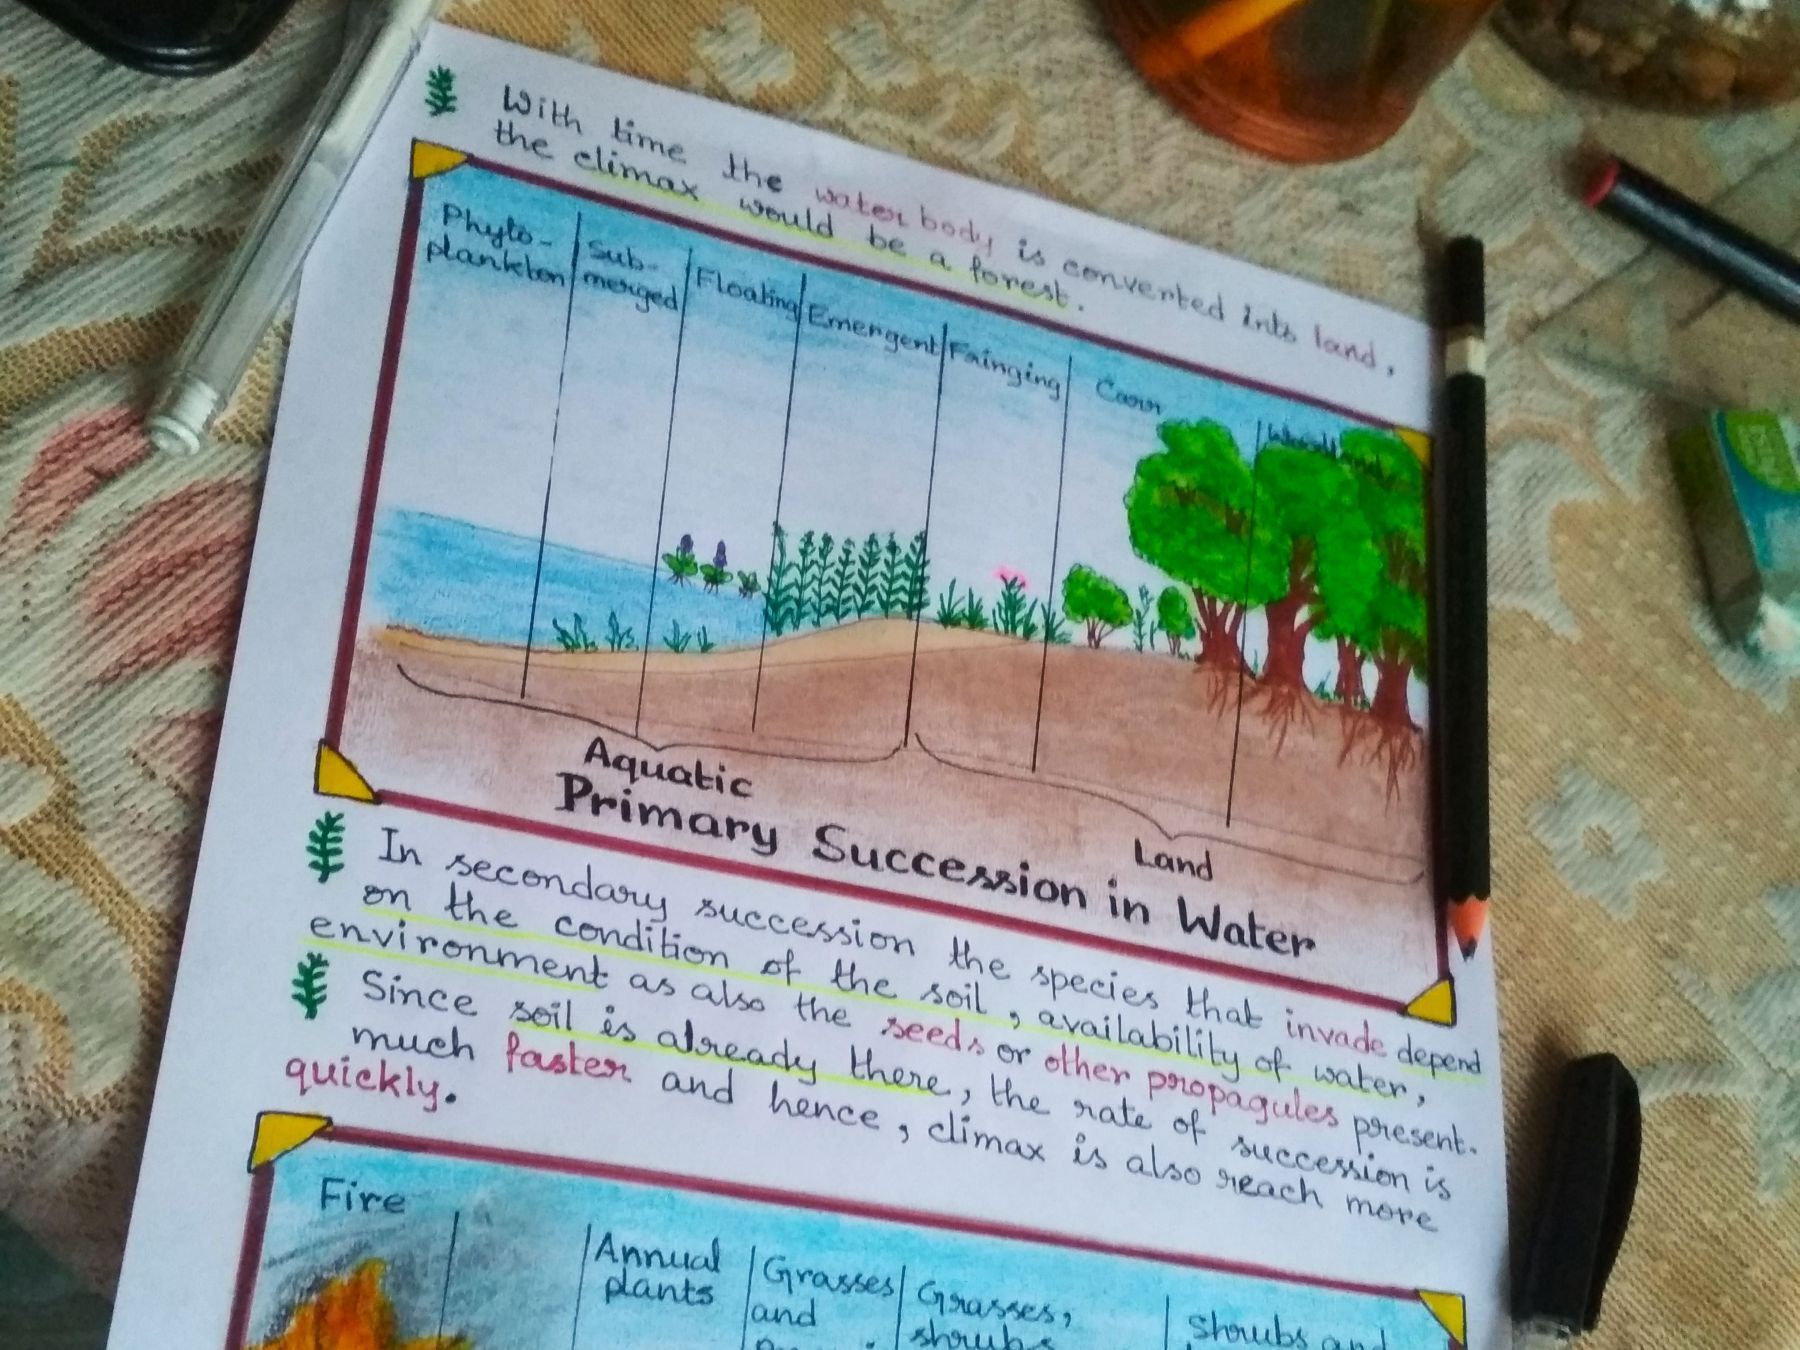 With time the water body is converted into land,
the climax would be a forest.
Phyto-
plankton
Sub-
merged
Floating
Emergent
Fringing
Carr
Woodland
Aquatic
Land
Primary Succession in Water
In secondary succession the species that invade depend
on the condition of the soil, availability of water,
environment as also the seeds or other propagules present.
Since soil is already there, the rate of succession is
much faster and hence, climax is also reach more
quickly.
Fire
Annual
plants
Grasses
and
Grasses,
shrubs
Shrubs and